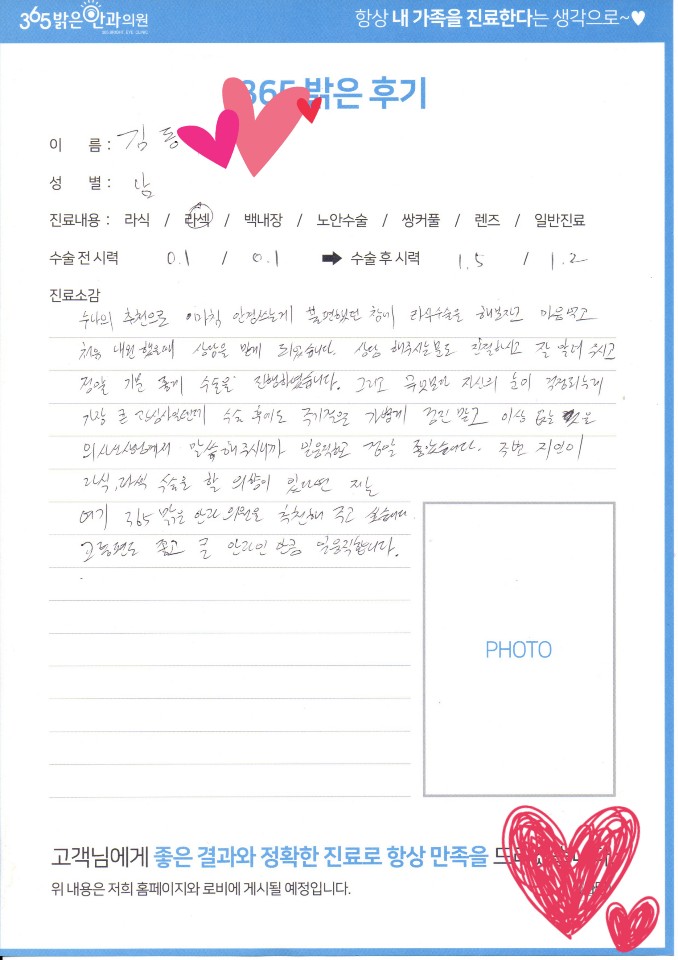 365밝은안과의원
항상 내 가족을 진료한다는 생각으로~♥
365 밝은 후기
이 름 : 김 동
성 별 : 남
진료내용 : 라식 / 라섹 / 백내장 / 노안수술 / 쌍커풀 / 렌즈 / 일반진료
수술 전 시력 0.1 / 0.1 ➡ 수술 후 시력 1.5 / 1.2
진료소감
누나의 추천으로 안경쓰는게 불편했던 참에 해보자고 마음먹고
처음 내원했을때 상담을 받게 되었습니다. 상담 해주시는분도 친절하시고 잘 알려 주시고
정말 기분 좋게 수술을 진행하였습니다. 그리고 무엇보다 자신의 눈이 걱정되는게
가장 큰 관심사일텐데 수술 후에도 주기적으로 검진 말고 이상 없는
의사선생님께서 말씀해주시니까 믿음직하고 정말 좋았습니다. 주변 지인이
라식, 라섹 수술을 할 의향이 있다면 저는
여기 365 밝은 안과 의원을 추천해 주고 싶습니다.
교통편도 좋고 큰 안과인 만큼 믿음직합니다.
PHOTO
고객님에게 좋은 결과와 정확한 진료로 항상 만족을
위 내용은 저희 홈페이지와 로비에 게시될 예정입니다.